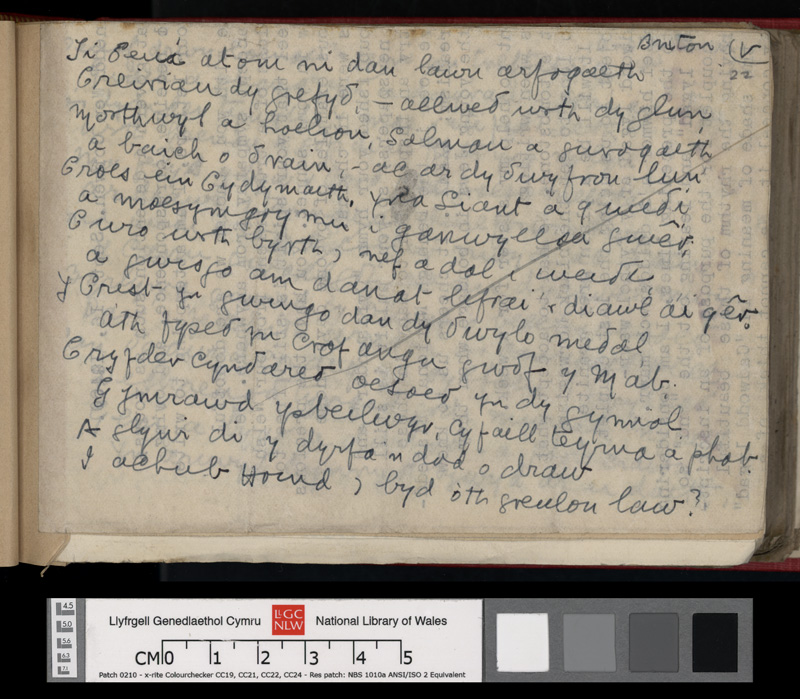 Bruton (V
22
Ti ddeui atom ni dan lawn arfogaeth
Creiriau dy grefyδ, – allweδ wrth dy glun,
Morthwyl a hoelion, Salmau a gwrogaeth
a baich o δrain, – ac ar dy δwyfron lun
Croes ein Cydymaith, Yr a Siant a gweδi
a moesymgrymu i ganwyllau gwêr,
Curo wrth byrth, nef a dal i weiδi
a gwisgo am danat lifrai'r diawl a'i gêr.
Y Crist yn gwingo dan dy δwylo meδal
a'th fyseδ yn crafangu gwδf y Mab.
Cryfder Cynδareδ oesoeδ yn dy gynnal
Gymrawd ysbeilwyr, Cyfaill teyrn a phab.
A glywi di y dyrfa'n dod o draw
I achub y byd o'th greulon law?
Llyfrgell Genedlaethol Cymru
LlGC
NLW
National Library of Wales
CM 0 1 2 3 4 5
Patch 0210 - x-rite Colourchecker CC19, CC21, CC22, CC24 - Res patch: NBS 1010a ANSI/ISO 2 Equivalent
4.5
5.0
5.6
6.3
7.1